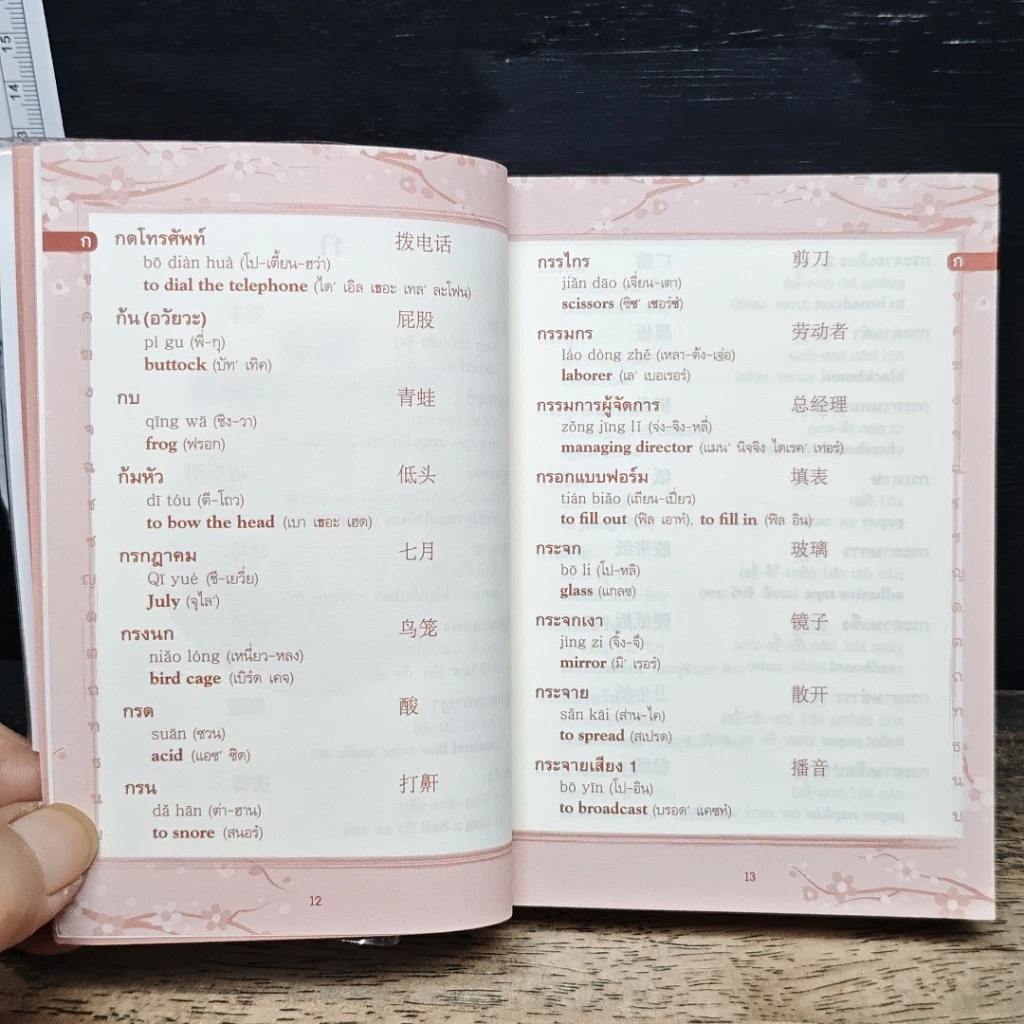 15
14
ก
กดโทรศัพท์ 拨电话
bō diàn huà (โป-เตี้ยน-ฮว่า)
to dial the telephone (ได´ เอิล เธอะ เทล´ ละโฟน)
ก้น (อวัยวะ) 屁股
pì gu (พี่-กุ)
buttock (บัท´ เทิค)
กบ 青蛙
qīng wā (ชิง-วา)
frog (ฟรอก)
ก้มหัว 低头
dī tóu (ตี-โถว)
to bow the head (เบา เธอะ เฮด)
กรกฎาคม 七月
Qī yuè (ชี-เยวี่ย)
July (จุไล´)
กรงนก 鸟笼
niǎo lóng (เหนี่ยว-หลง)
bird cage (เบิร์ด เคจ)
กรด 酸
suān (ซวน)
acid (แอซ´ ซิด)
กรน 打鼾
dǎ hān (ต่า-ฮาน)
to snore (สนอร์)
12
ก
กรรไกร 剪刀
jiǎn dāo (เจี่ยน-เตา)
scissors (ซิซ´ เซอร์ซ์)
กรรมกร 劳动者
láo dòng zhě (เหลา-ต้ง-เจ่อ)
laborer (เล´ เบอเรอร์)
กรรมการผู้จัดการ 总经理
zǒng jīng lǐ (จ่ง-จิง-หลี่)
managing director (แมน´ นิจจิง ไดเรค´ เทอร์)
กรอกแบบฟอร์ม 填表
tián biǎo (เถียน-เปี่ยว)
to fill out (ฟิล เอาท์), to fill in (ฟิล อิน)
กระจก 玻璃
bō li (โป-หลิ)
glass (แกลซ)
กระจกเงา 镜子
jìng zi (จิ้ง-จึ)
mirror (มิ´ เรอร์)
กระจาย 散开
sǎn kāi (ส่าน-ไค)
to spread (สเปรด)
กระจายเสียง 1 播音
bō yīn (โป-อิน)
to broadcast (บรอด´ แคซท์)
13